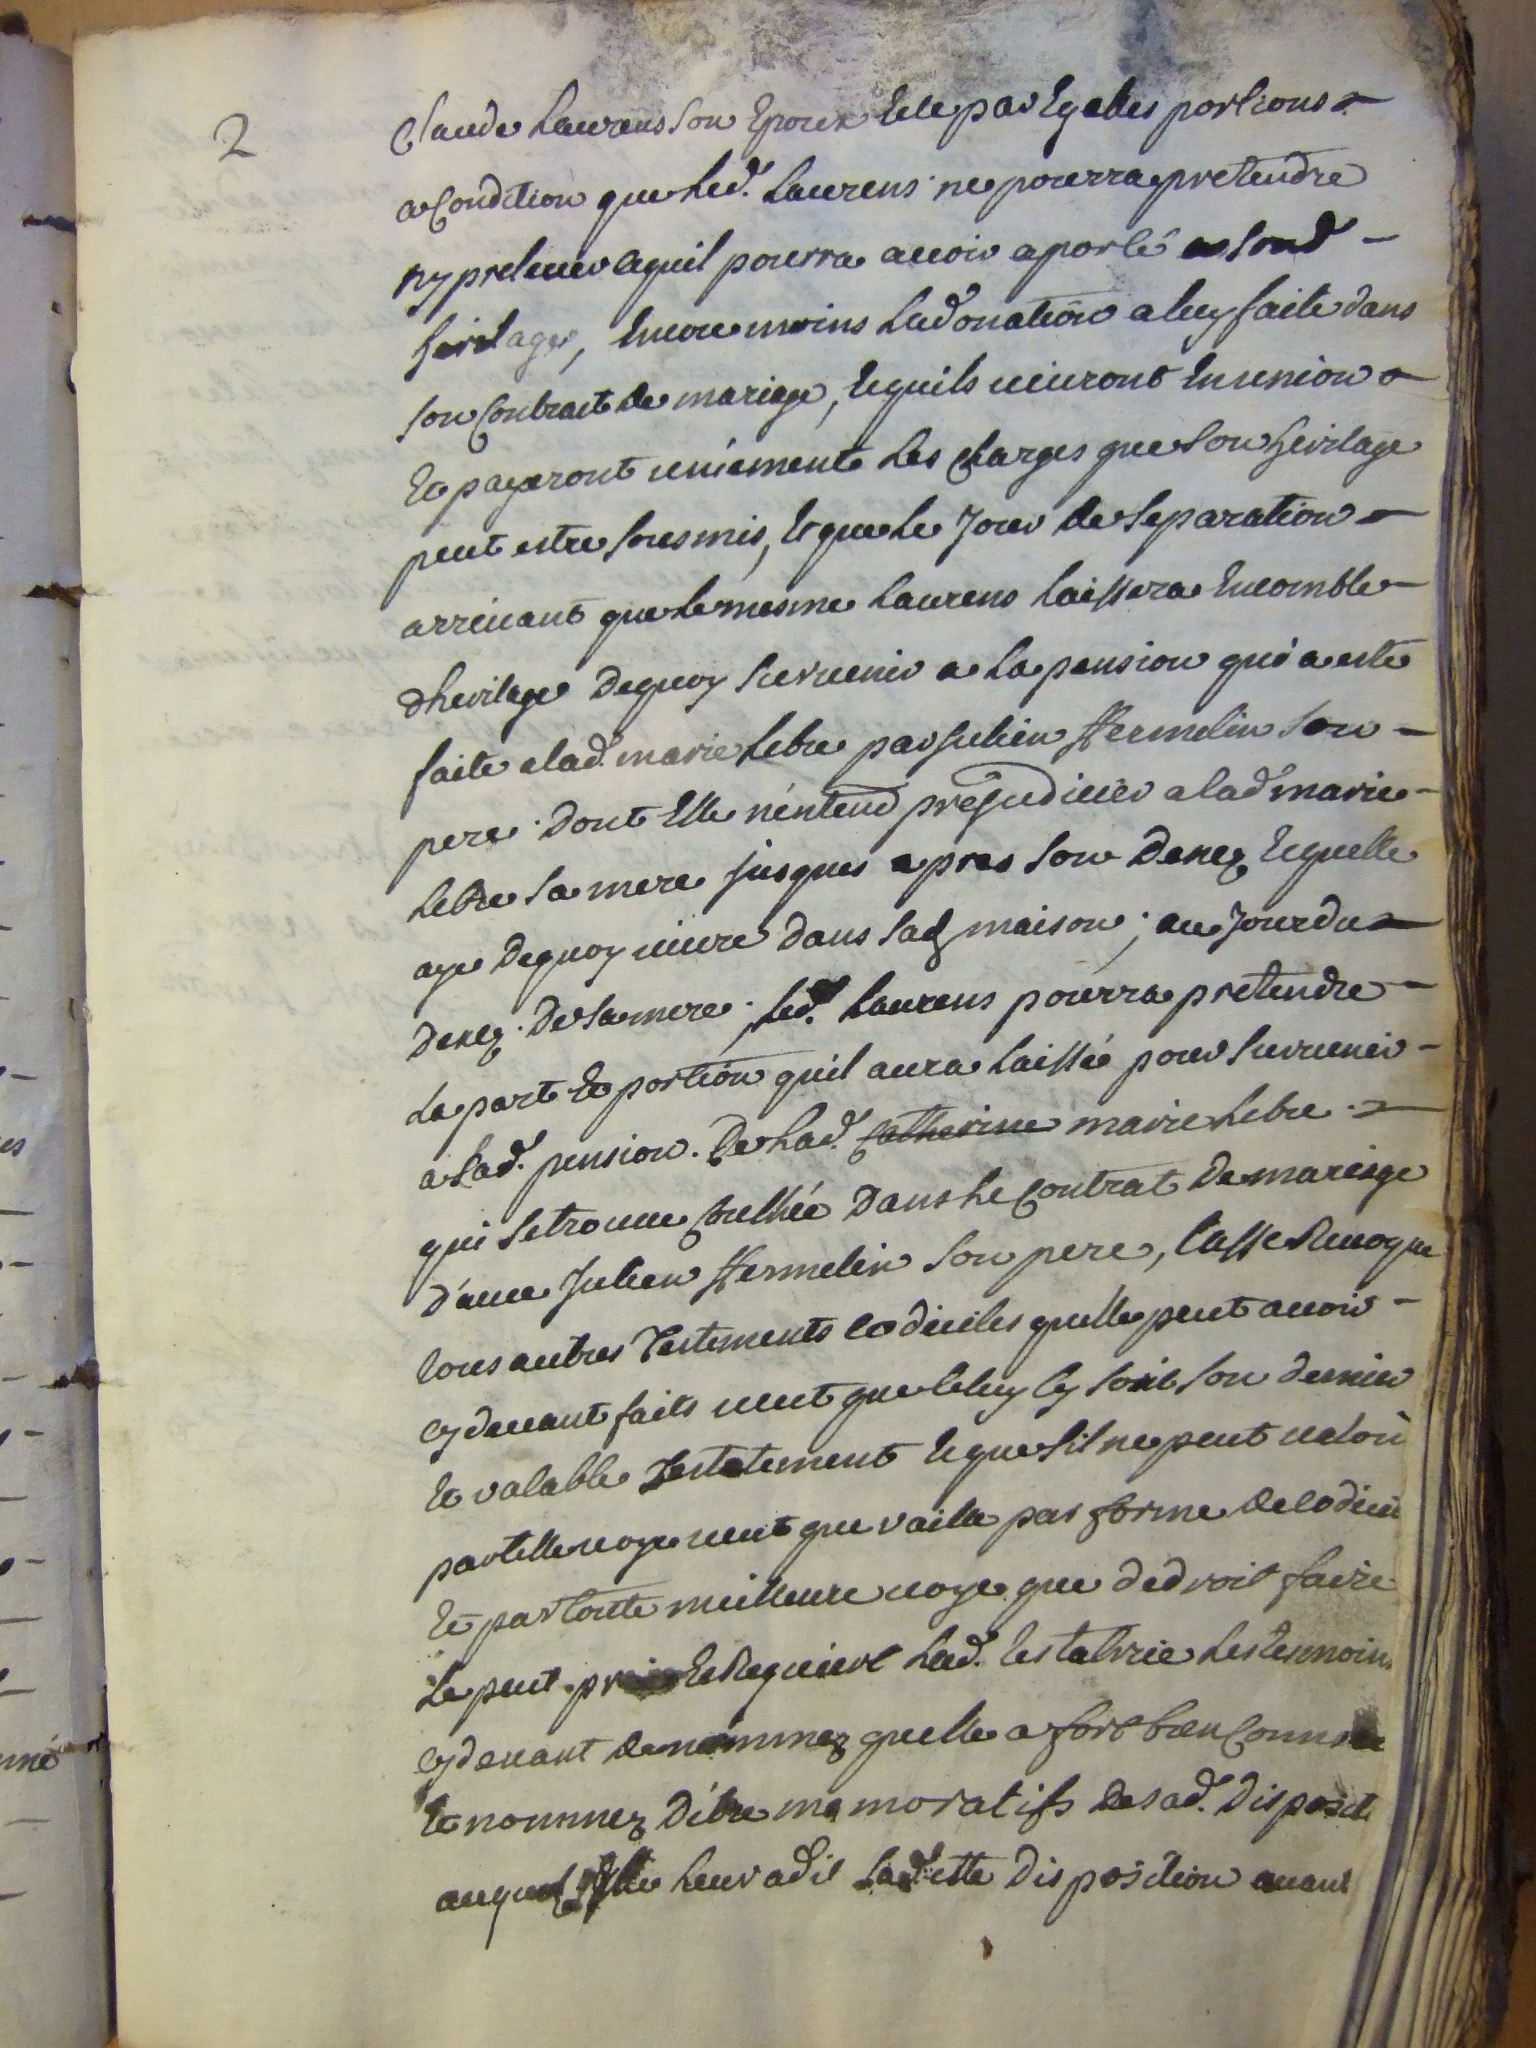 2
Claude Laurens son Epoux Et le par Egalles portions
a Condition que Led. Laurens ne pourra pretendre
ny prelever ce quil pourra avoir aporté sond
heritage, Encore moins La donation a luy faite dans
son Contract de mariage, Et quils vivront En union
Et payeront uniement Les Charges que son heritage
peut estre sousmis, Et que Le Jour de separation
arrivant que Le mesme Laurens Laissera En comble
dheritage dequoy survenir a La pension qui a esté
faite a lad. marie Lebre par Julien Hermelin son
pere dont Elle n'entend préjudicier a lad marie
Lebre sa mere jusques apres son decez Et quelle
aye dequoy vivre dans sad maison ; au Jour du
decez de sa mere Led. Laurens pourra pretendre
La part Et portion quil aura Laissée pour survenir
a Lad. pension de Lad. Catherine marie Lebre
qui se trouve Couchée dans Le Contrat de mariage
d'avec Julien Hermelin son pere, Casse Revoque
tous autres Testements codiciles quelle peut avoir
cy devant faits veut que Celuy cy soit son dernier
Et valable Testatement Et que sil ne peut valoir
par telle voye veut que vaille par forme de codicil
Et par toute meilleure voye que de droit faire
Le peut Et Requiert Lad. Testatrice Les Tesmoins
cy devant denommez quelle a fort bien Connus
Et nommez d'être memoratifs de sad. disposit
Leur a dit Laditte disposition avant